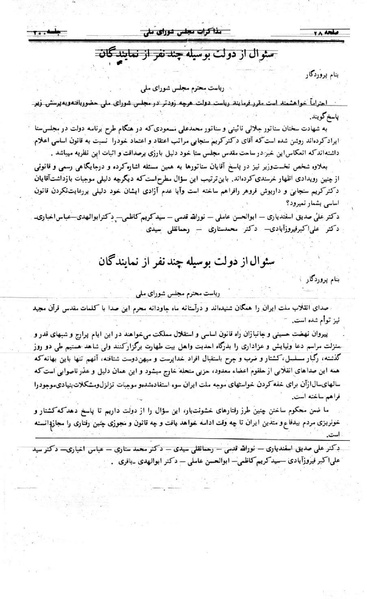 صفحه ۲۸
مذاکرات مجلس شورای ملی
جلسه ۲۰۰
سئوال از دولت بوسیله چند نفر از نمایندگان
بنام پروردگار
ریاست محترم مجلس شورای ملی
احتراماً خواهشمند است مقرر فرمایند ریاست دولت هرچه زودتر در مجلس شورای ملی حضور یافته و به پرسش زیر
پاسخ گویند.
به شهادت سخنان سناتور جلالی نائینی و سناتور محمدعلی مسعودی که در هنگام طرح برنامه دولت در مجلس سنا
ایراد کرده‌اند روشن شده است که آقای دکتر کریم سنجابی مراتب اعتقاد و اعتماد خود را نسبت به قانون اساسی اعلام
داشته‌اند که انعکاس این خبر در ساحت مقدس مجلس سنا خود دلیل بارزی بر صداقت و اثبات این نظریه میباشد.
بعلاوه شخص نخست‌وزیر نیز در پاسخ آقایان سناتورها به همین مسئله اشاره کرده و در جایگاهی رسمی و قانونی
از چنین رویدادی اظهار خرسندی کرده‌اند. باین ترتیب این سؤال مطرح است که دیگر چه دلیلی موجبات بازداشت آقایان
دکتر کریم سنجابی و داریوش فروهر را فراهم ساخته است و آیا عدم آزادی ایشان خود دلیلی بر رعایت نکردن قانون
اساسی بشمار نمیرود؟
دکتر علی صدیق اسفندیاری - ابوالحسن عاملی - نورالله قدسی - سید کریم کاظمی - دکتر ابوالهدی - عباس اخباری -
دکتر علی‌اکبر فیروزآبادی - دکتر محمد ستاری - رحمانقلی سیدی.
سئوال از دولت بوسیله چند نفر از نمایندگان
بنام پروردگار
ریاست محترم مجلس شورای ملی
صدای انقلاب ملت ایران را همگان شنیده‌اند و در آستانه ماه جاودانه محرم این صدا با کلمات مقدس قرآن مجید
نیز توأم شده است.
پیروان نهضت حسینی و جانبازان راه قانون اساسی و استقلال مملکت می‌خواهند در این ایام پرارج و شبهای قدر و
منزلت مراسم دعا و نیایش و عزاداری را بدرگاه احدیت و اهل بیت طهارت برگزار کنند ولی شاهد هستیم طی دو روز
گذشته، رگبار مسلسل، کشتار و ضرب و جرح باستقبال افراد خداپرست و میهن‌دوست شتافته، آنهم تنها باین بهانه که
همه این صداهای انقلابی از حلقوم اعضاء معدود، حزبی منحله خارج میشود و این همان دلیل و عذر ناصوابی است که
سالهای سال از آن برای خفه کردن خواستهای موجه ملت ایران سوء استفاده شده و موجبات تزلزل و مشکلات بنیادی موجود را
فراهم ساخته است.
ما ضمن محکوم ساختن چنین طرز رفتارهای خشونت‌بار، این سؤال را از دولت داریم تا پاسخ دهد که کشتار و
خونریزی مردم بیدفاع و متدین ایران تا چه وقت ادامه خواهد یافت و چه قانون و مجوزی چنین رفتاری را مجاز دانسته
است.
دکتر علی صدیق اسفندیاری - نورالله قدسی - رحمانقلی سیدی - دکتر محمد ستاری - عباس اخباری - دکتر سید
علی اکبر فیروزآبادی - سید کریم کاظمی - ابوالحسن عاملی - دکتر ابوالهدی - باقری.